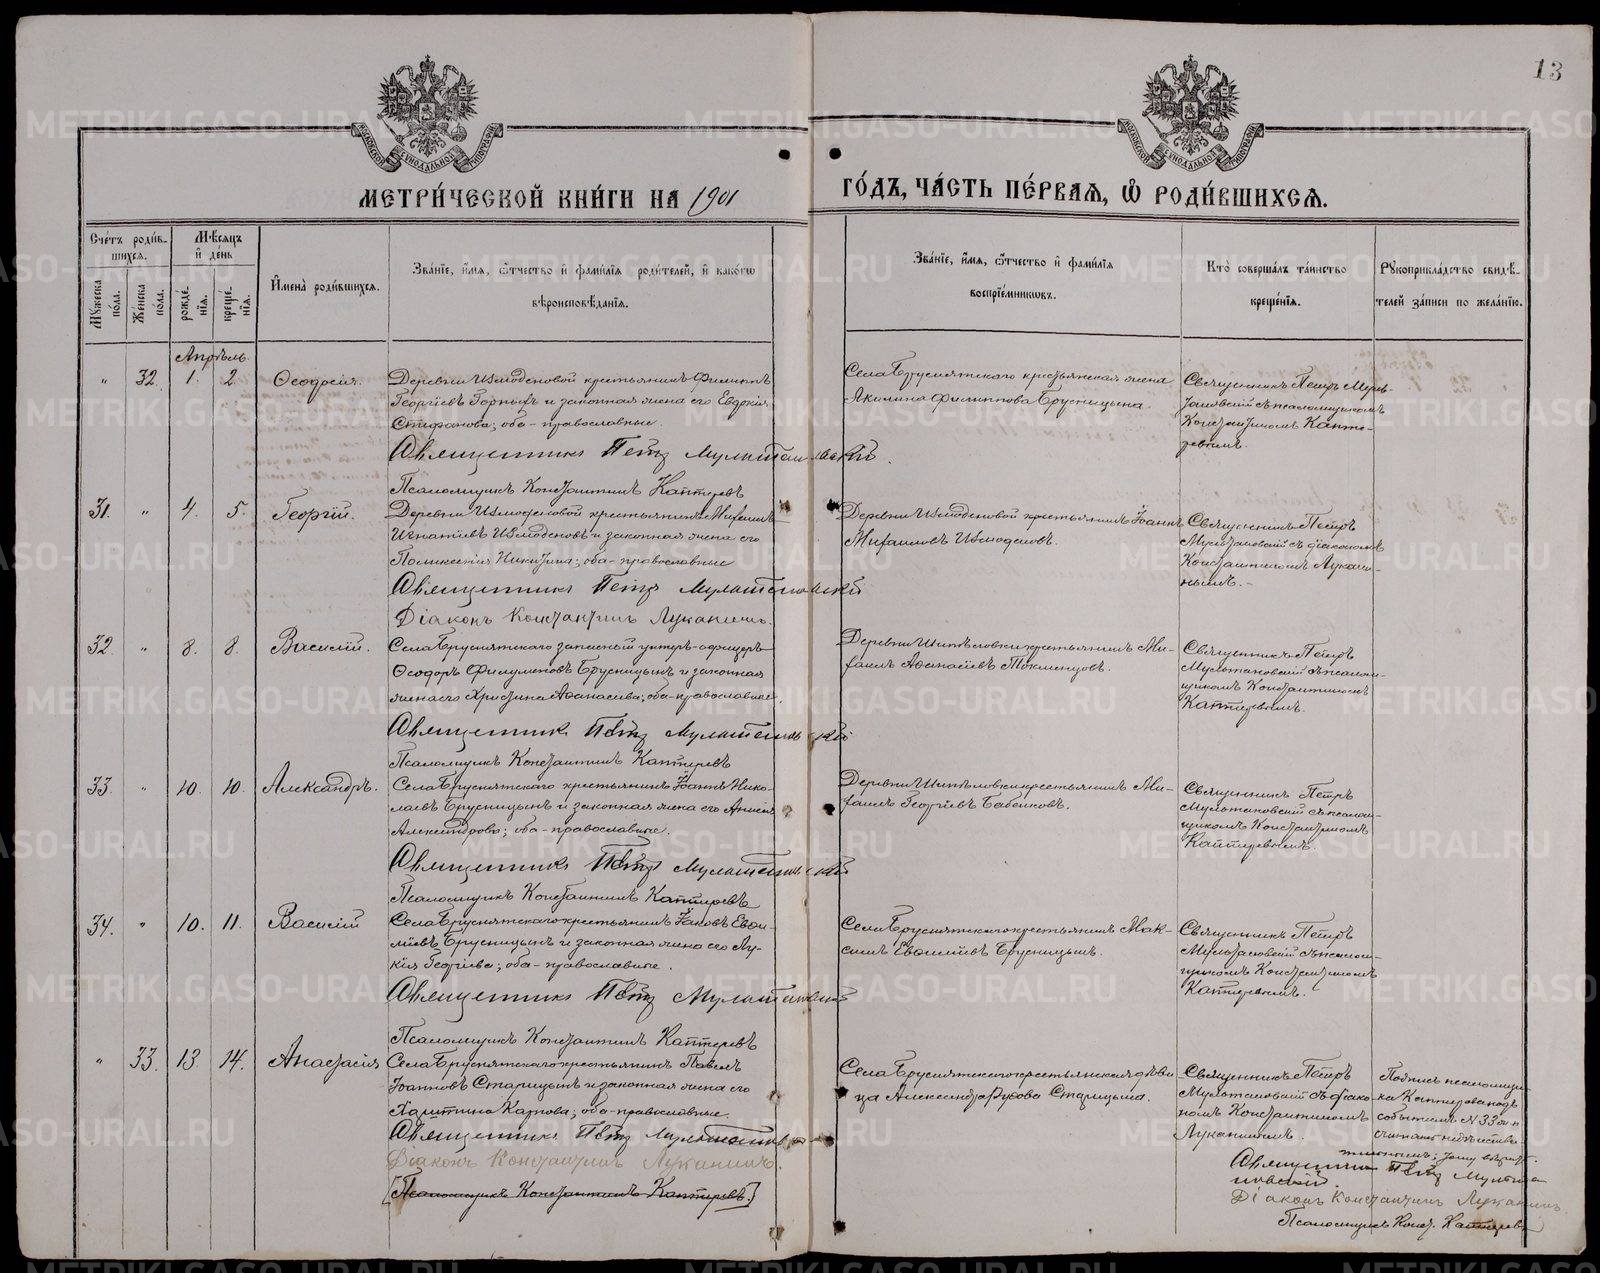 13
МОСКОВСКОЙ СѴНОДАЛЬНОЙ ТИПОГРАФІИ
МОСКОВСКОЙ СѴНОДАЛЬНОЙ ТИПОГРАФІИ
МЕТРИ́ЧЕСКОЙ КНИ́ГИ НА 1901
ГО́ДЪ, ЧА́СТЬ ПЕ́РВАЯ, Ѽ РОДИ́ВШИХСЯ.
Сче́тъ роди́в-
шихся.
Мѣсяцъ
и҆ де́нь
Му́жеска по́ла.
Же́нска по́ла.
рожде́нїя.
креще́нїя.
И҆мена̀ роди́вшихся.
Зва́нїе, и҆́мя, ѻ҆́тчество и҆ фами́лїя роди́телей, и҆ како́гѡ
вѣроисповѣ́данїя.
Зва́нїе, и҆́мя, ѻ҆́тчество и҆ фами́лїя
воспрїе́мниковъ.
Кто̀ соверша́лъ та́инство
креще́нїя.
Рꙋкоприкла́дство свидѣ́-
телей за́писи по жела́нїю.
Апрѣль
" 32. 1. 2. Ѳеодосія.
Деревни Измоденовой крестьянинъ Филиппъ
Георгіевъ Горныхъ и законная жена его Евдокія
Стефанова; оба-православные.
Священникъ Петръ Мультановскій.
Псаломщикъ Константинъ Каптеревъ
Села Брусянскаго крестьянская жена
Акилина Филиппова Брусницына.
Священникъ Петръ Муль-
тановскій съ псаломщикомъ
Константиномъ Капте-
ревымъ.
31. " 4. 5. Георгій.
Деревни Измоденовой крестьянинъ Михаилъ
Игнатіевъ Измоденовъ и законная жена его
Поликсенія Никитина; оба-православные
Священникъ Петръ Мультановскій
Діаконъ Константинъ Луканинъ.
Деревни Измоденовой крестьянинъ Іоаннъ
Михаиловъ Измоденовъ.
Священникъ Петръ
Мультановскій съ діакономъ
Константиномъ Лукани-
нымъ.-
32. " 8. 8. Василій.
Села Брусянскаго запасный унтеръ-офицеръ
Ѳеодоръ Филумоновъ Брусницынъ и законная
жена его Христина Аѳанасіева; оба-православные.
Священникъ Петръ Мультановскій
Псаломщикъ Константинъ Каптеревъ
крестьянинъ Ми-
хаилъ Аѳанасіевъ
Священникъ Петръ
Мультановскій съ псалом-
щикомъ Константиномъ
Каптеревымъ.
33. " 10. 10. Александръ.
Села Брусянскаго крестьянинъ Іоаннъ Нико-
лаевъ Брусницынъ и законная жена его Анисія
Александрова; оба-православные.
Священникъ Петръ Мультановскій
Псаломщикъ Константинъ Каптеревъ
крестьянинъ Ми-
хаилъ Георгіевъ Бабенковъ.
Священникъ Петръ
Мультановскій съ псалом-
щикомъ Константиномъ
Каптеревымъ.
34. " 10. 11. Василій
Села Брусянскаго крестьянинъ Іаковъ Еваи-
ліевъ Брусницынъ и законная жена его Лу-
кія Георгіева; оба-православные.
Священникъ Петръ Мультановскій
Псаломщикъ Константинъ Каптеревъ
Села Брусянскаго крестьянинъ Мак-
симъ Брусницынъ.
Священникъ Петръ
Мультановскій съ псалом-
щикомъ Константиномъ
Каптеревымъ.
" 33. 13. 14. Анастасія
Села Брусянскаго крестьянинъ Павелъ
Іоанновъ Старицынъ и законная жена его
Харитина Карпова; оба-православные.
Священникъ Петръ Мультановскій
Діаконъ Константинъ Луканинъ.
[Псаломщикъ Константинъ Каптеревъ.]
Села Брусянскаго крестьянская дѣви-
ца Александра Старицына.
Священникъ Петръ
Мультановскій съ діако-
номъ Константиномъ
Луканинымъ.
Подпись псаломщи-
ка Каптерева подъ
событіемъ № 33
считать недѣйстви-
тельной; тому вѣрить.
Священникъ Петръ Мульта-
новскій.
Діаконъ Константинъ Луканинъ.
Псаломщикъ Конст. Каптеревъ
METRIKI.GASO-URAL.RU